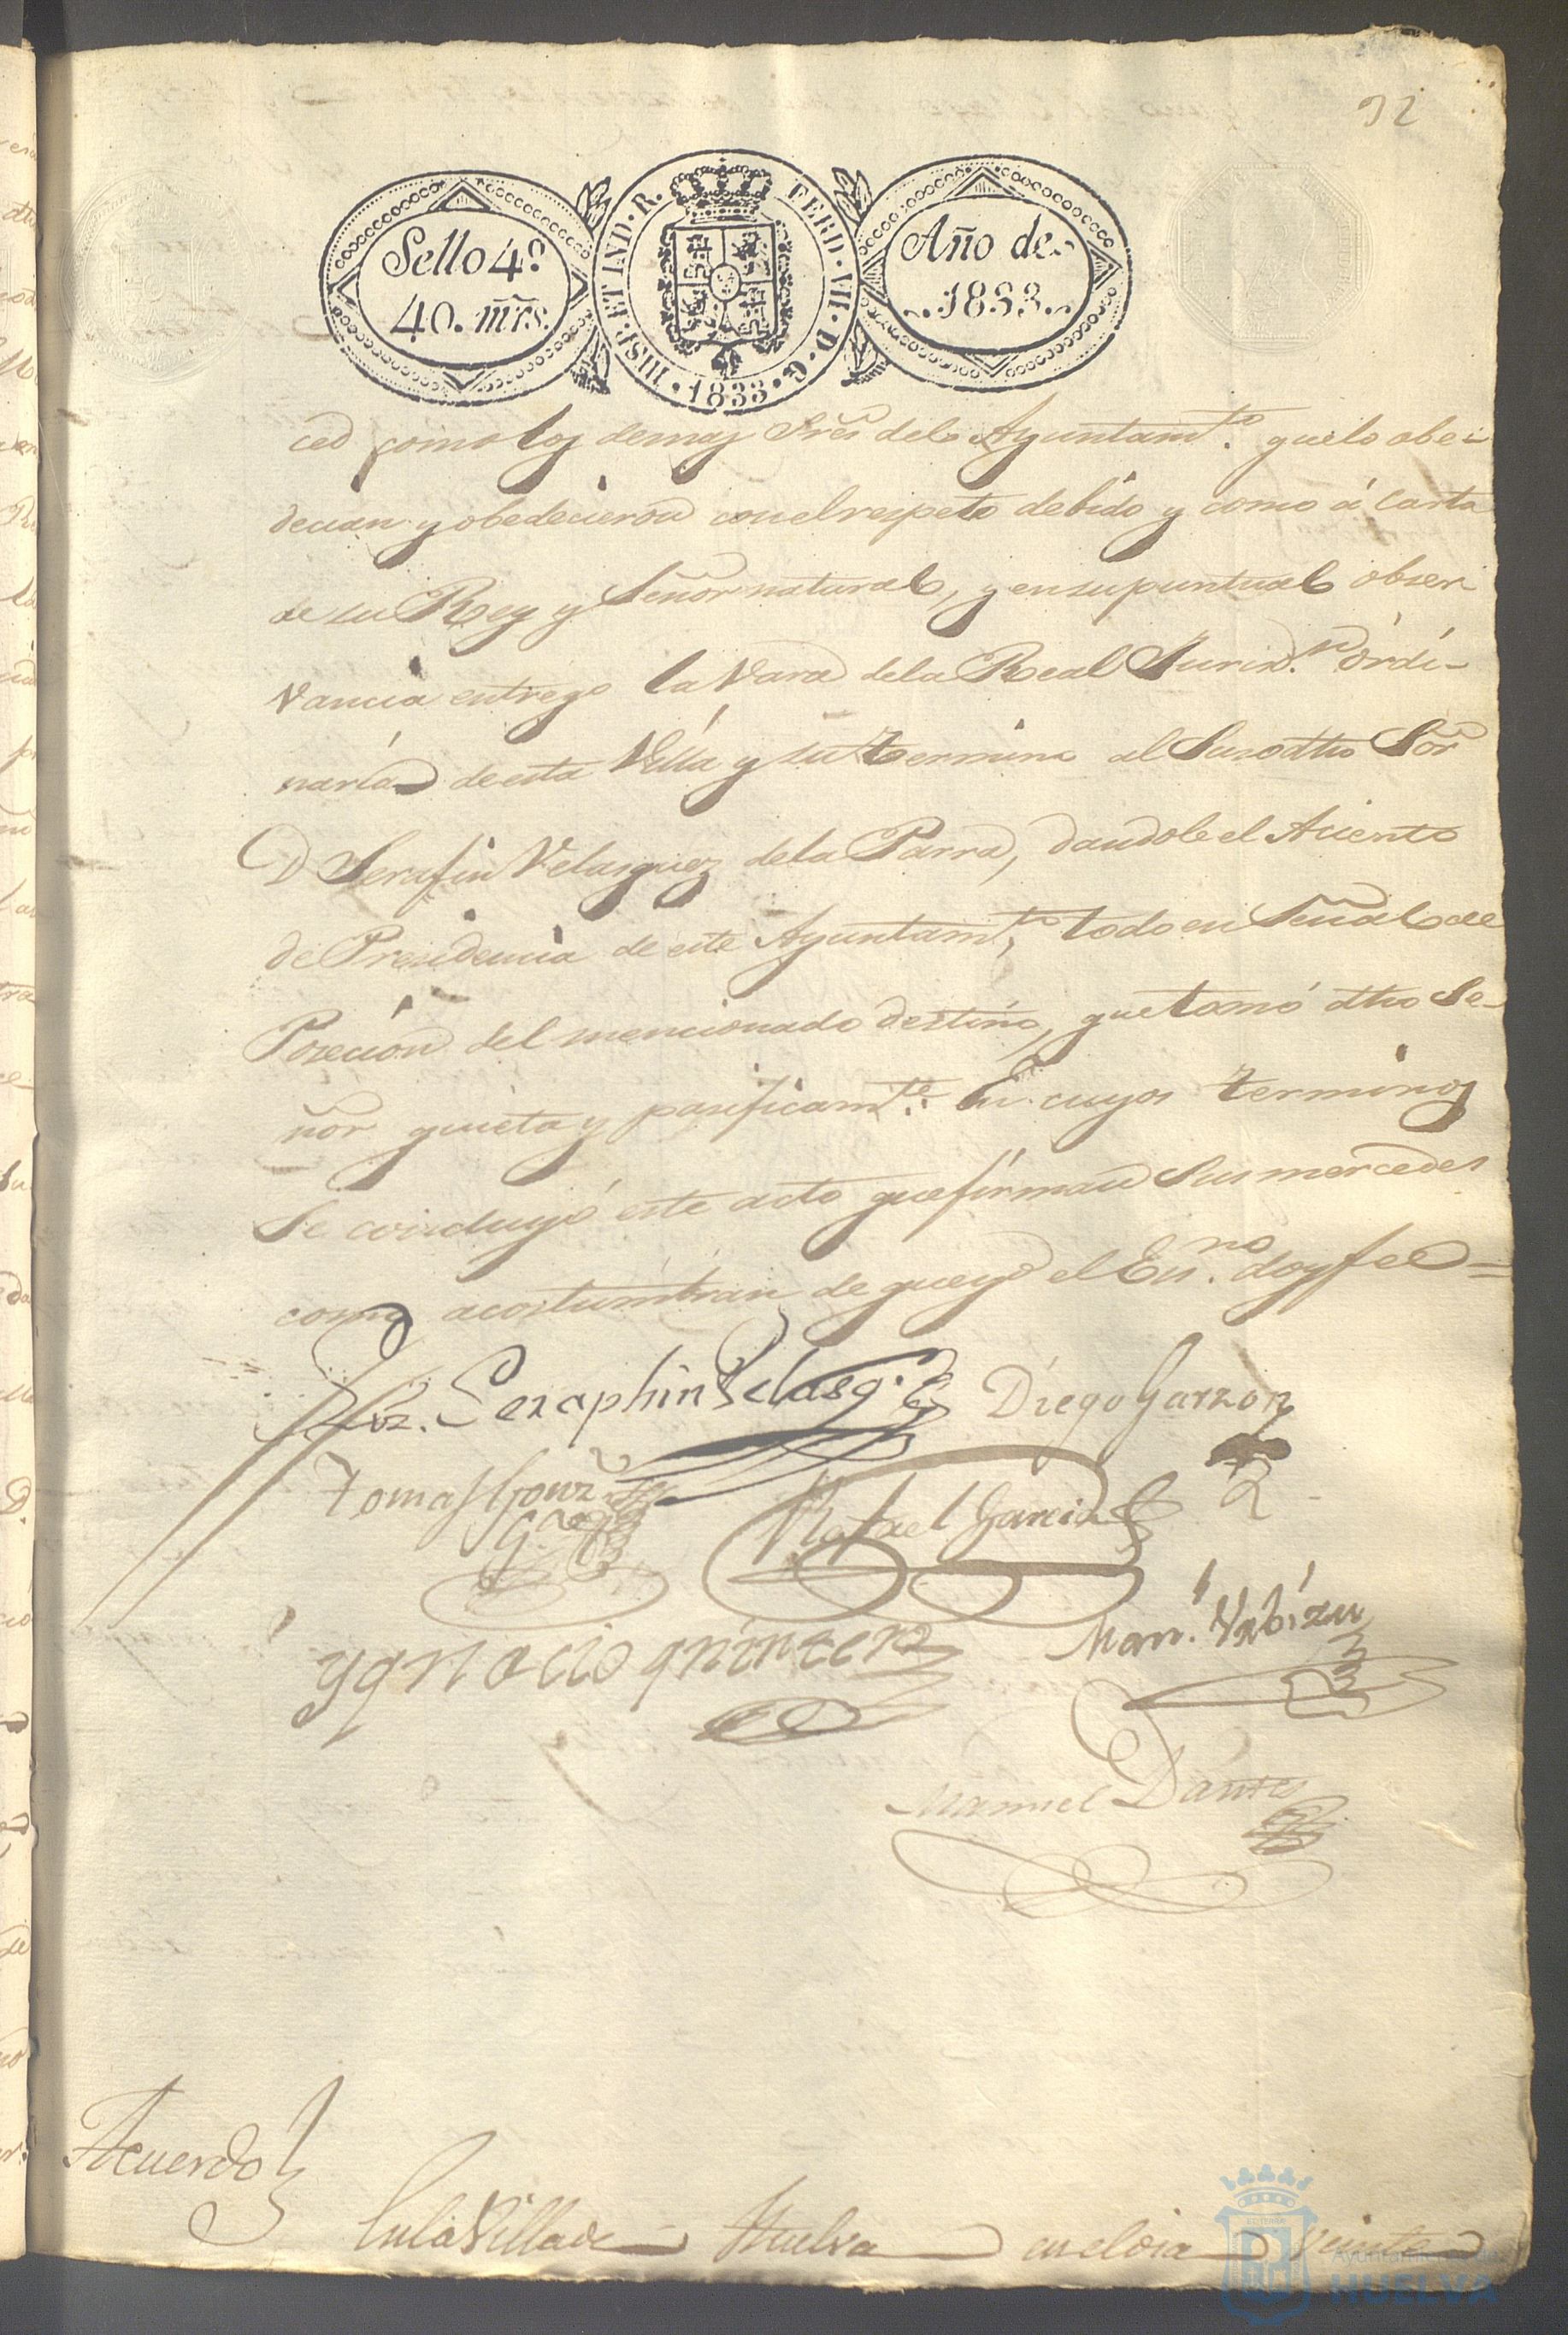 92
Sello 4º
40. mrs.
HISP. ET IND. R. FERD. VII. D. G. 1833.
Año de
1833.
ced como los demas Sres del Ayuntamto. que lo obe-
decian y obedecieron con el respeto debido y como á Carta
de su Rey y Señor natural, y en su puntual obser-
vancia entrego la Vara de la Real Jurisdn. órdi-
naria de esta Villa y su termino al Susodho Sor
D Serafin Velasquez de la Parra, dandole el Asiento
de Presidencia de este Ayuntamto, todo en Señal de
Posecion del mencionado destino, que tomó dho Se-
ñor quieta y pasificamte. En cuyos terminos
Se concluyó este acto que firman Sus mercedes
como acostumbran de que yo el Esno. doy fee =
Seraphin Velasqz
Diego Garzon
Tomas Gonz
Rafael Garcia
ygnacio quintero
Man.l Vrbizu
Manuel Dantes
Acuerdo
En la Villa de Huelva en el dia veinte
Ayuntamiento de
HUELVA